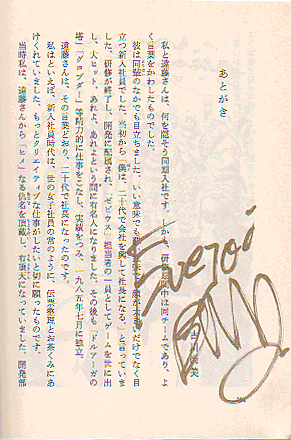 あとがき
私と遠藤さんは、何を隠そう同期入社です。しかも、研修期間中は同チームであり、よ
く言葉をかわしたものでした。
彼は同輩のなかでも目立ちました。いい意味でも
だけでなく目
立つ新入社員でした。当初から「僕は、二十代で会社を興して社長になる」と言っていま
した。研修が終了し、開発に配属され、『ゼビウス』担当者の一員としてゲームを世に出
し、大ヒット、あれよ、あれよという間に有名人になりました。その後も『ドルアーガの
塔』『グロブダー』等精力的に仕事をこなし、実績をつみ、一九八五年七月に独立。
遠藤さんは、その言葉どおり、二十代で社長になったのです。
私はといえば、新入社員時代は、世の女子社員の常のように、伝票整理とお茶くみにあ
けくれていました。もっとクリエイティブな仕事がしたいと切に願ったものです。
当時私は、遠藤さんから「ヒメ」なる仇名を頂戴し、有頂天になっていました。開発部